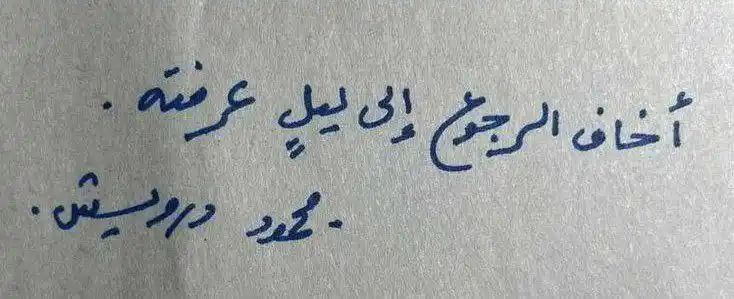 أخاف الرجوع إلى ليلٍ عرفته .
. محمود درويش .